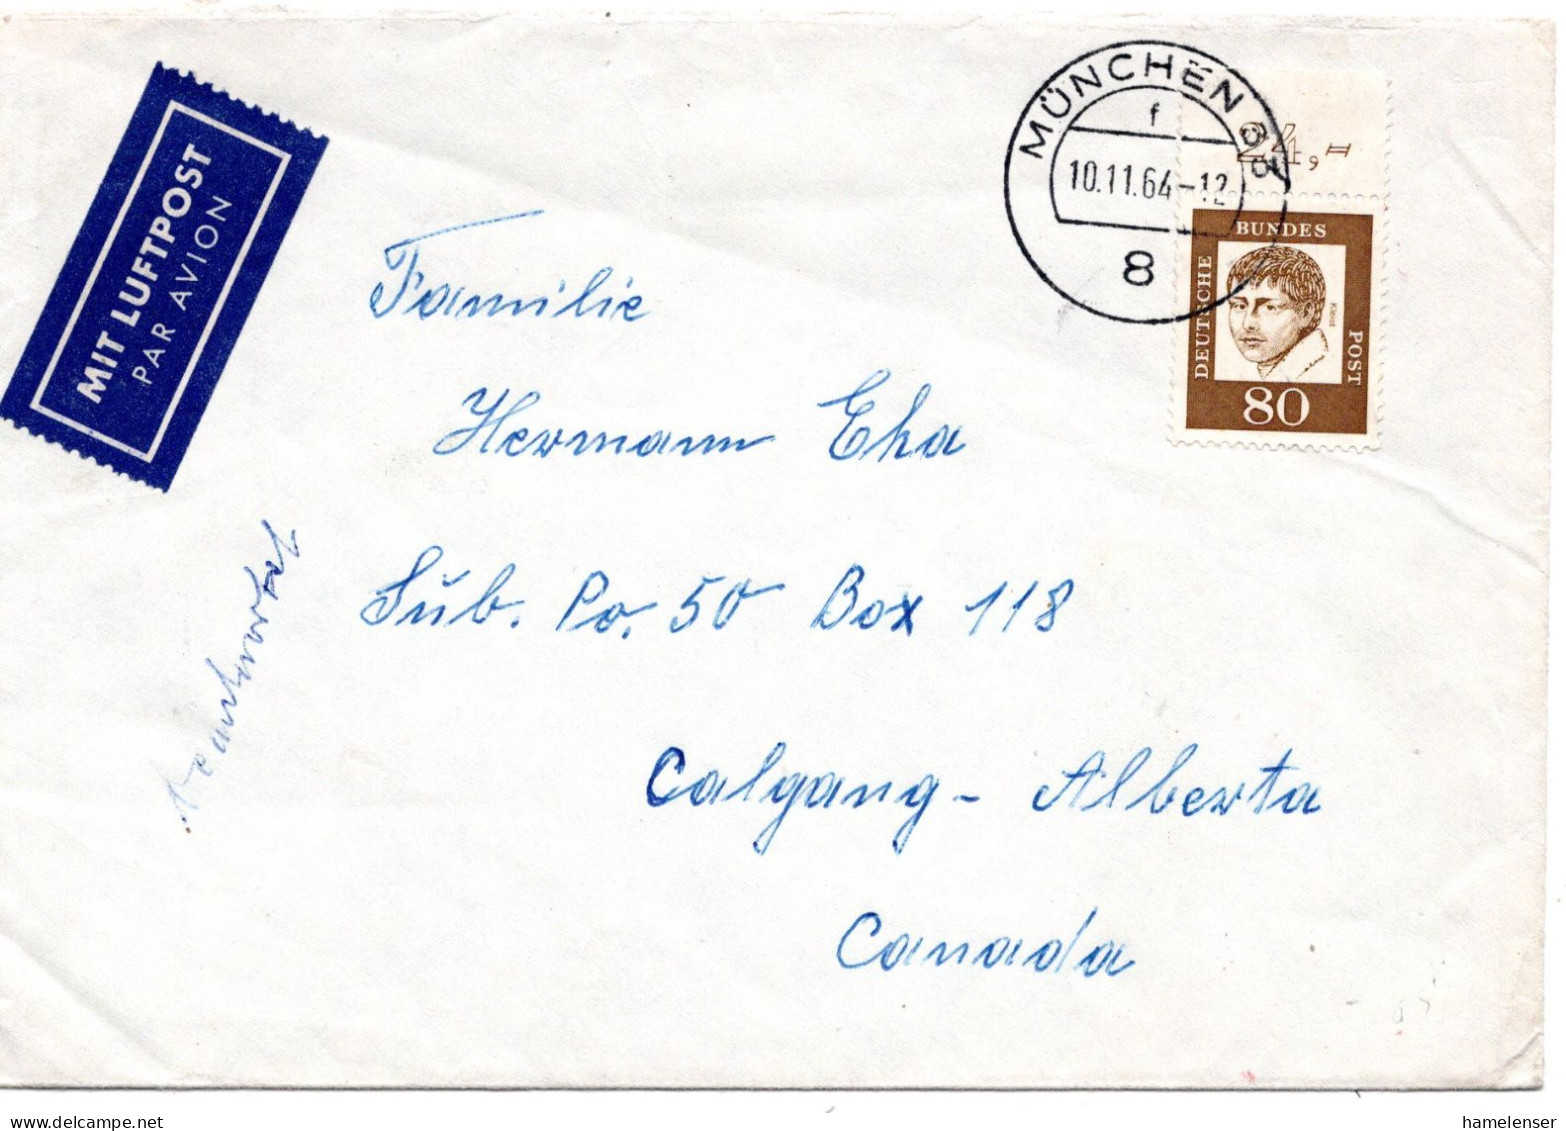 MIT LUFTPOST
PAR AVION
MÜNCHEN
f
10.11.64-12
8
24,-
DEUTSCHE BUNDES POST
Kleist
80
Familie
Hermann Eha
Sub. Po. 50 Box 118
Calgang - Alberta
Canada
beantwortet
www.delcampe.net
hamelenser